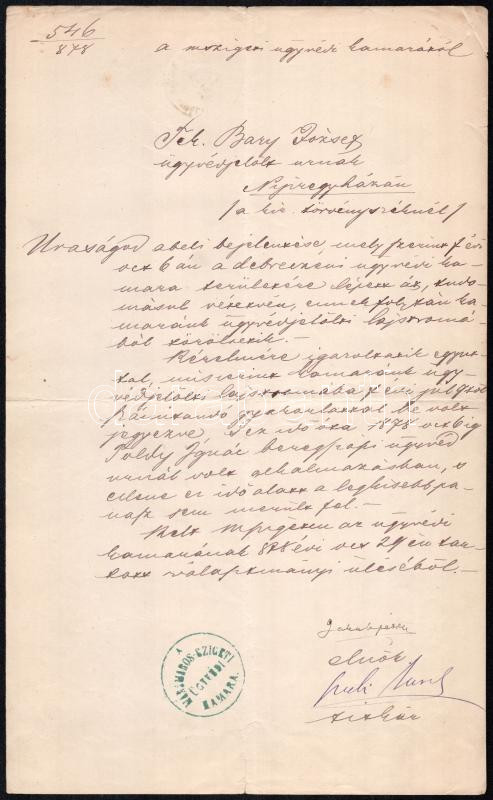 546
878
a mszigeti ügyvédi kamarától
Tek. Bary József
ügyvédjelölt urnak
Nyiregyházán
/a kir. törvényszéknél/
Uraságod abeli bejelentése, mely szerint f. évi
oct 6án a debreczeni ügyvédi ka-
mara területére lépett át, tudo-
másul vétetvén, ennek folytán ka-
maránk ügyvédjelölti lajstromá-
ból töröltetik. –
Kérelmére igazoltatik egyut-
tal, miszerint kamaránk ügy-
védjelölti lajstromába f. évi
gyakorlattal be volt
jegyezve s ez idő óta 1878 oct 6ig
Ignácz beregszászi ügyvéd
urnál volt alkalmazásban, s
ellene ez idő alatt a legkisebb pa-
nasz sem merült fel. –
Kelt Mszigeten az ügyvédi
kamarának 878 évi oct 29én tar-
tott választmányi üléséből. –
elnök
titkár
A MÁRMAROS-SZIGETI
ÜGYVÉDI
KAMARA.
darabanth